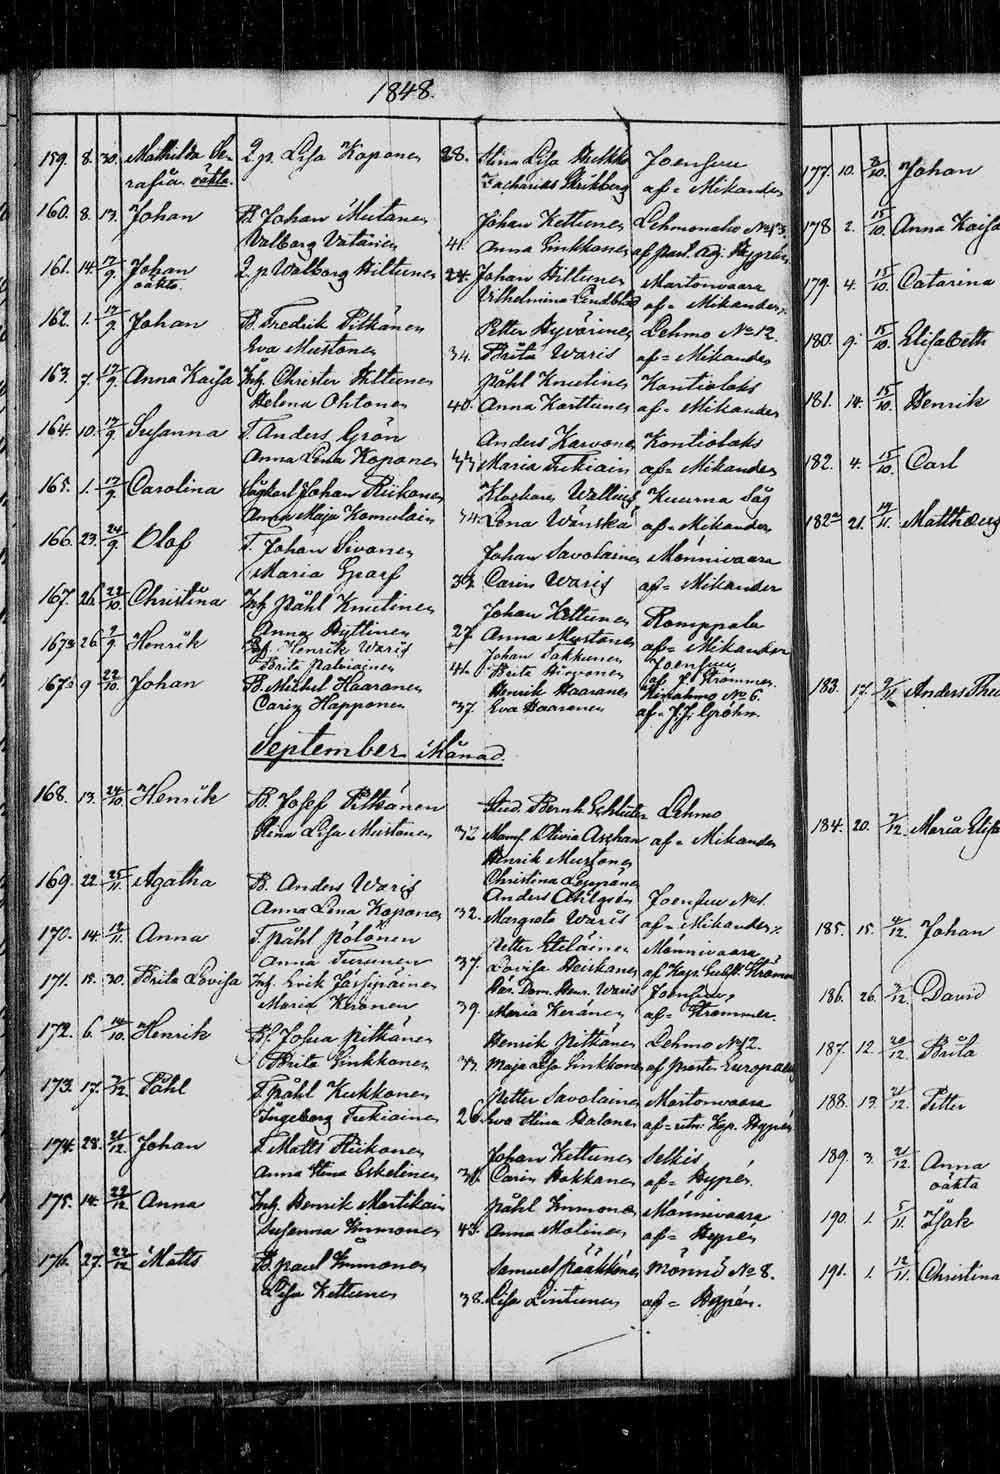 1848.
159. 8. 30. Mathilda Se- Q. p. Lisa Koponen 28. Stina Lisa Hukka Joensuu
rafia oäkta. Zacharias Strikberg af = Mikander
160. 8. 13. Johan B. Johan Mustonen Johan Kettunen Lehmonaho No 13
Valborg Vatanen 41. Anna Sinkkonen af past. adj. Hypén
161. 14. 17/9. Johan Q. p Walborg Hiltunen 24. Johan Hiltunen Martonvaara
oäkta. Vilhelmina Lindblad af = Mikander
162. 1. 17/9. Johan B. Fredrik Pitkänen Petter Hyvärinen Lehmo No 12.
Eva Mustonen 34. Brita Waris af = Mikander
163. 7. 17/9. Anna Kaisa Inh. Christer Hiltunen Påhl Knutinen Kontiolaks
Helena Ohtonen 40. Anna Karttunen af = Mikander
164. 10. 17/9. Susanna T. Anders Grön Anders Kervonen Kontiolaks
Anna Lena Koponen Maria Tukiain af = Mikander
165. 1. 17/9. Carolina Sågkarl Johan Riikonen Klockare Wallius Kuurna Såg
Anna Maja Komulain 34. Lena Wänskä af = Mikander
166. 23. 24/9. Olof T. Johan Sivonen Johan Savolainen Mönnivaara
Maria Graf 33. Carin Waris af = Mikander
167. 26. 22/10. Christina Inh. Påhl Knutinen Johan Kettunen Romppala
Anna Hyttinen 27. Anna Mustonen af = Mikander
167 26 9/9. Henrik Henrik Waris Johan Sakkunen Joensuu
Brita Palviainen 41. Brita Hirvonen af J. Strömmer.
167 9 22/10. Johan B. Michel Haaranen Henrik Haaranen No 6.
Carin Happonen 37. Eva Haaranen af J. J. Gröhn.
September Månad.
168. 13. 24/10. Henrik B. Josef Pitkänen Stud. Bernh. Lehmo
Stina Lisa Mustonen 32 Mams. Olivia Aschan af = Mikander
Henrik Mustonen
Christina
169. 22. 25/11. Agatha B. Anders Waris Anders Ahlgrén Joensuu No 1.
Anna Lena Koponen 32. Margreta Waris af = Mikander
170. 14. 11. Anna T. Påhl Pölönen Petter Eteläinen Mönnivaara
Anna Turunen 37. Lovisa Heiskanen af Kap.
171. 15. 30. Brita Lovisa Inh. Erik Henr. Waris Joensuu
Maria Keränen 39. Maria Keränen af = Strömmer.
172. 6. 14/10. Henrik B. Josua Pitkänen Henrik Pitkänen Lehmo No 12.
Brita Sinkkonen Maja Lisa Sinkkonen af Prosten Europaeus
173. 17. 3/12. Påhl T. Påhl Kukkonen Petter Savolainen Martonvaara
Ingeborg Tukiainen 26. Eva Stina Halonen af = Kap. Hypén
174. 28. 21/12. Johan T. Matts Riikonen Johan Kettunen Selkis
Anna Stina Eskelinen 30. Carin Hakkanen af = Hypén.
175. 14. 22/12. Anna Inh. Henrik Martikain Påhl Immonen Mönnivaara
Susanna Immonen 43. Anna Molinen af = Hypén
176. 27. 22/12 Matts B. Paul Immonen Samuel Pääkkönen Mönni No 8.
Lisa Kettunen 38. Lisa Lintunen af = Hypén.
177. 10. 8/10. Johan
178 2. 15/10. Anna Kaisa
179. 4. 15/10. Catarina
180. 9. 15/10. Elisabeth
181. 14. 15/10. Henrik
182. 4. 15/10. Carl
182 21. 11. Matthaeus
183. 17. 9/11. Anders Theo
184. 20. 7/12. Maria Elisa
185. 15. 12. Johan
186. 26. 12. David
187. 12. 20/12. Brita
188. 13. 21/12. Petter
189. 3. 21/12. Anna
oäkta
190. 1. 5/11. Isak
191. 1. 12/11. Christina